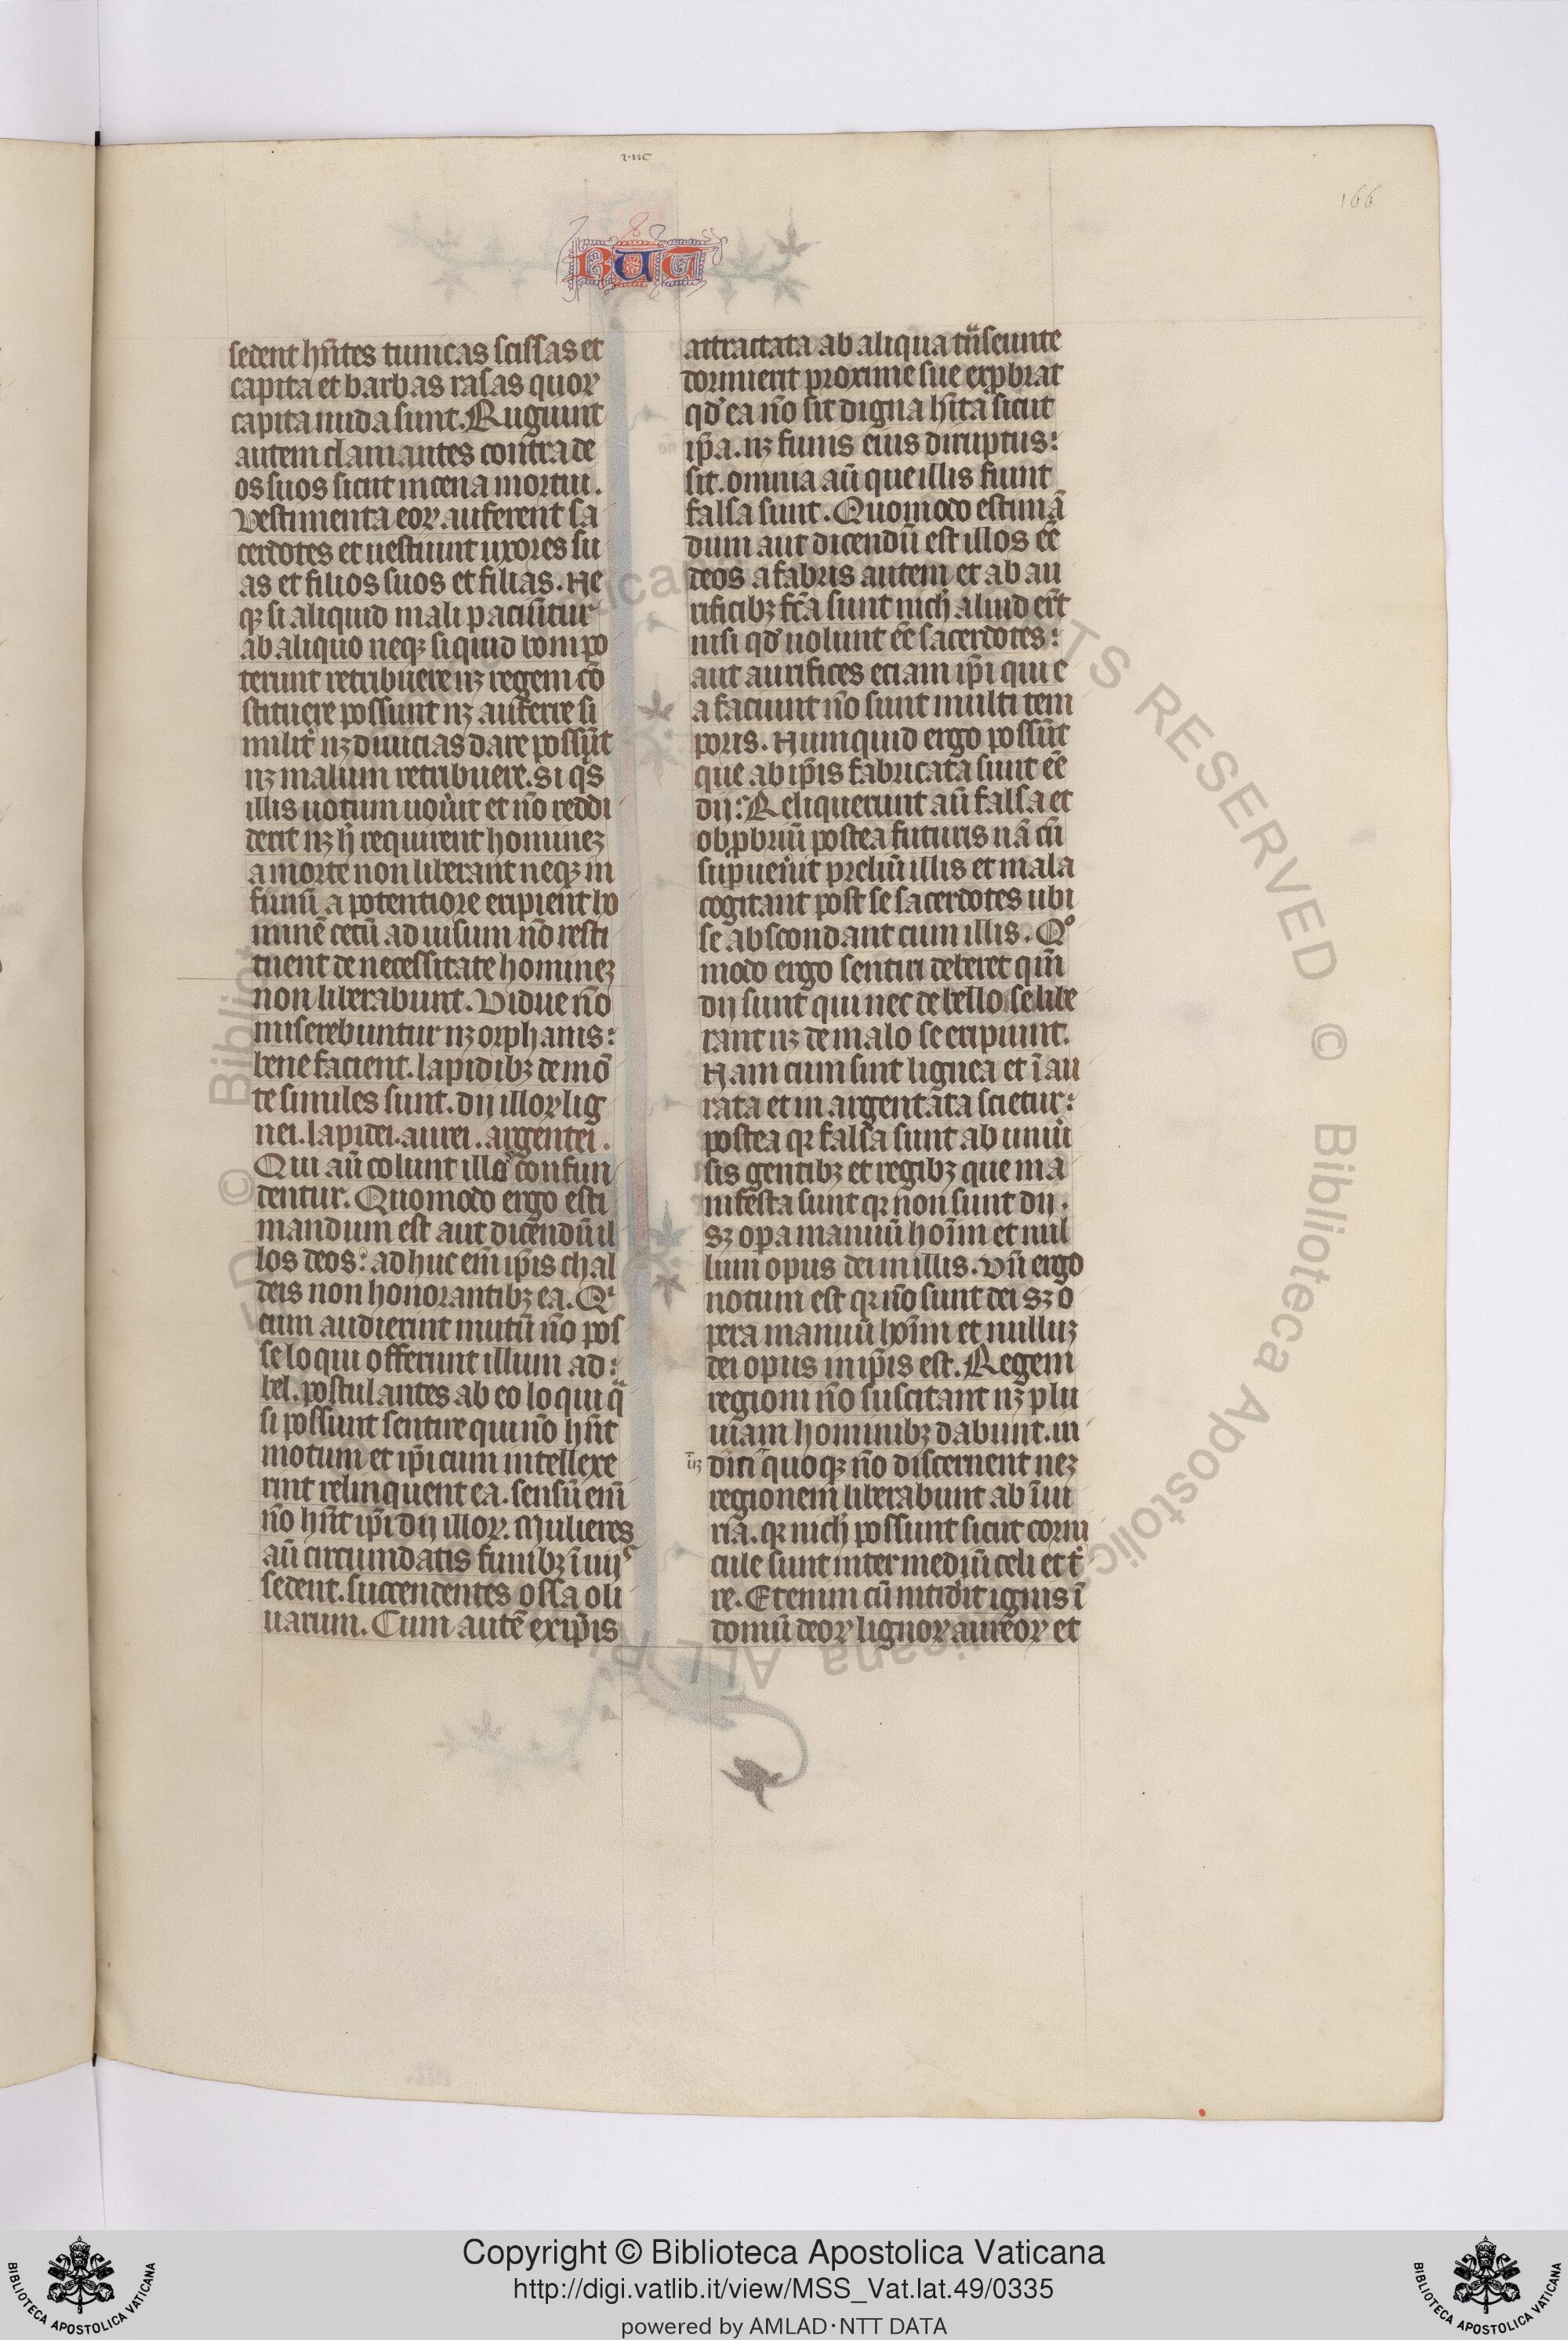 166
RUC
sedent hn̄tes tunicas scissas et
capita et barbas rasas quoꝝ
capita nuda sunt. Rugiunt
autem clamantes contra de
os suos sicut in cena mortui.
Vestimenta eoꝝ auferent sa
cerdotes et uestiunt uxores su
as et filios suos et filias. Ne
qꝫ si aliquid mali paciūtur
ab aliquo neqꝫ si quid boni po
terunt retribuere nꝫ regem cō
stituere possunt nꝫ auferre si
milit̉ nꝫ diuicias dare possūt
nꝫ malum retribuere. si qͥs
illis uotum uou̾it et nō reddi
derit nꝫ h̄ requirent hominez
a morte non liberant neqꝫ in
firmū a potentiore eripient ho
minē cecū ad uisum nō resti
tuent de necessitate hominez
non liberabunt. Vidue nō
miserebuntur nꝫ orphanis:
bene facient. lapidibꝫ de mō
te similes sunt. dij illoꝝ lig
nei. lapidei. aurei. argentei.
Qui aū colunt illos confun
dentur. Quomodo ergo esti
mandum est aut dicendū il
los deos: ad huc em̄ ip̄is chal
deis non honorantibꝫ ea. Qͥ
cum audierint mutū nō pos
se loqui offerunt illum ad:
bel. postulantes ab eo loqui qͣ
si possunt sentire qui nō hn̄t
motum et ip̄i cum intellexe
rint relinquent ea. sensū em̄
nō hn̄t ip̄i dij illoꝝ. Mulieres
aū circumdatis funibꝫ ī uijs
sedent. succendentes ossa oli
uarum. Cum autē ex ip̄is
attractata ab aliqua tͣ̄seunte
dormierit proxime sue exꝓbrat
qd̓ ea nō sit digna hīta sicut
ip̄a. nꝫ funis eius diruptus:
sit. omnia aū que illis fiunt
falsa sunt. Quomodo estimā
dum aut dicendū est illos eē
deos a fabris autem et ab au
rificibꝫ fc̄a sunt nich̄ aliud er̄t
nisi qd̓ uolunt eē sacerdotes:
aut aurifices eciam ip̄i qui e
a faciunt nō sunt multi tem
poris. Numquid ergo possūt
que ab ip̄is fabricata sunt eē
dij: Reliquerunt aū falsa et
obꝓbriū postea futuris nā cū
suꝑuen̾it preliū illis et mala
cogitant post se sacerdotes ubi
se abscondant cum illis. Qͦ
modo ergo sentiri deberet qm̄
dij sunt qui nec de bello se libe
rant nꝫ de malo se eripiunt.
Nam cum sint lignea et ī au
rata et in argentata scietur:
postea qꝛ falsa sunt ab uniū
sis gentibꝫ et regibꝫ que ma
nifesta sunt qꝛ non sunt dij.
sꝫ oꝑa manuū hoīm et nul
lum opus dei in illis. Vn̄ ergo
notum est qꝛ nō sunt dei sꝫ o
pera manuū hoīm et nulluz
dei opus in ip̄is est. Regem
regioni nō suscitant nꝫ plu
uiam hominibꝫ dabunt. iu
diciū quoqꝫ nō discernent nez
regionem liberabunt ab iniu
ria. qꝛ nich̄ possunt sicut corni
cule sunt inter mediū celi et t̾
re. Etenim cū incid̾it ignis ī
domū deoꝝ lignoꝝ aureoꝝ et
© Biblioteca Apostolica Vaticana ALL RIGHTS RESERVED
Copyright © Biblioteca Apostolica Vaticana
http://digi.vatlib.it/view/MSS_Vat.lat.49/0335
powered by AMLAD·NTT DATA
BIBLIOTECA APOSTOLICA VATICANA
BIBLIOTECA APOSTOLICA VATICANA